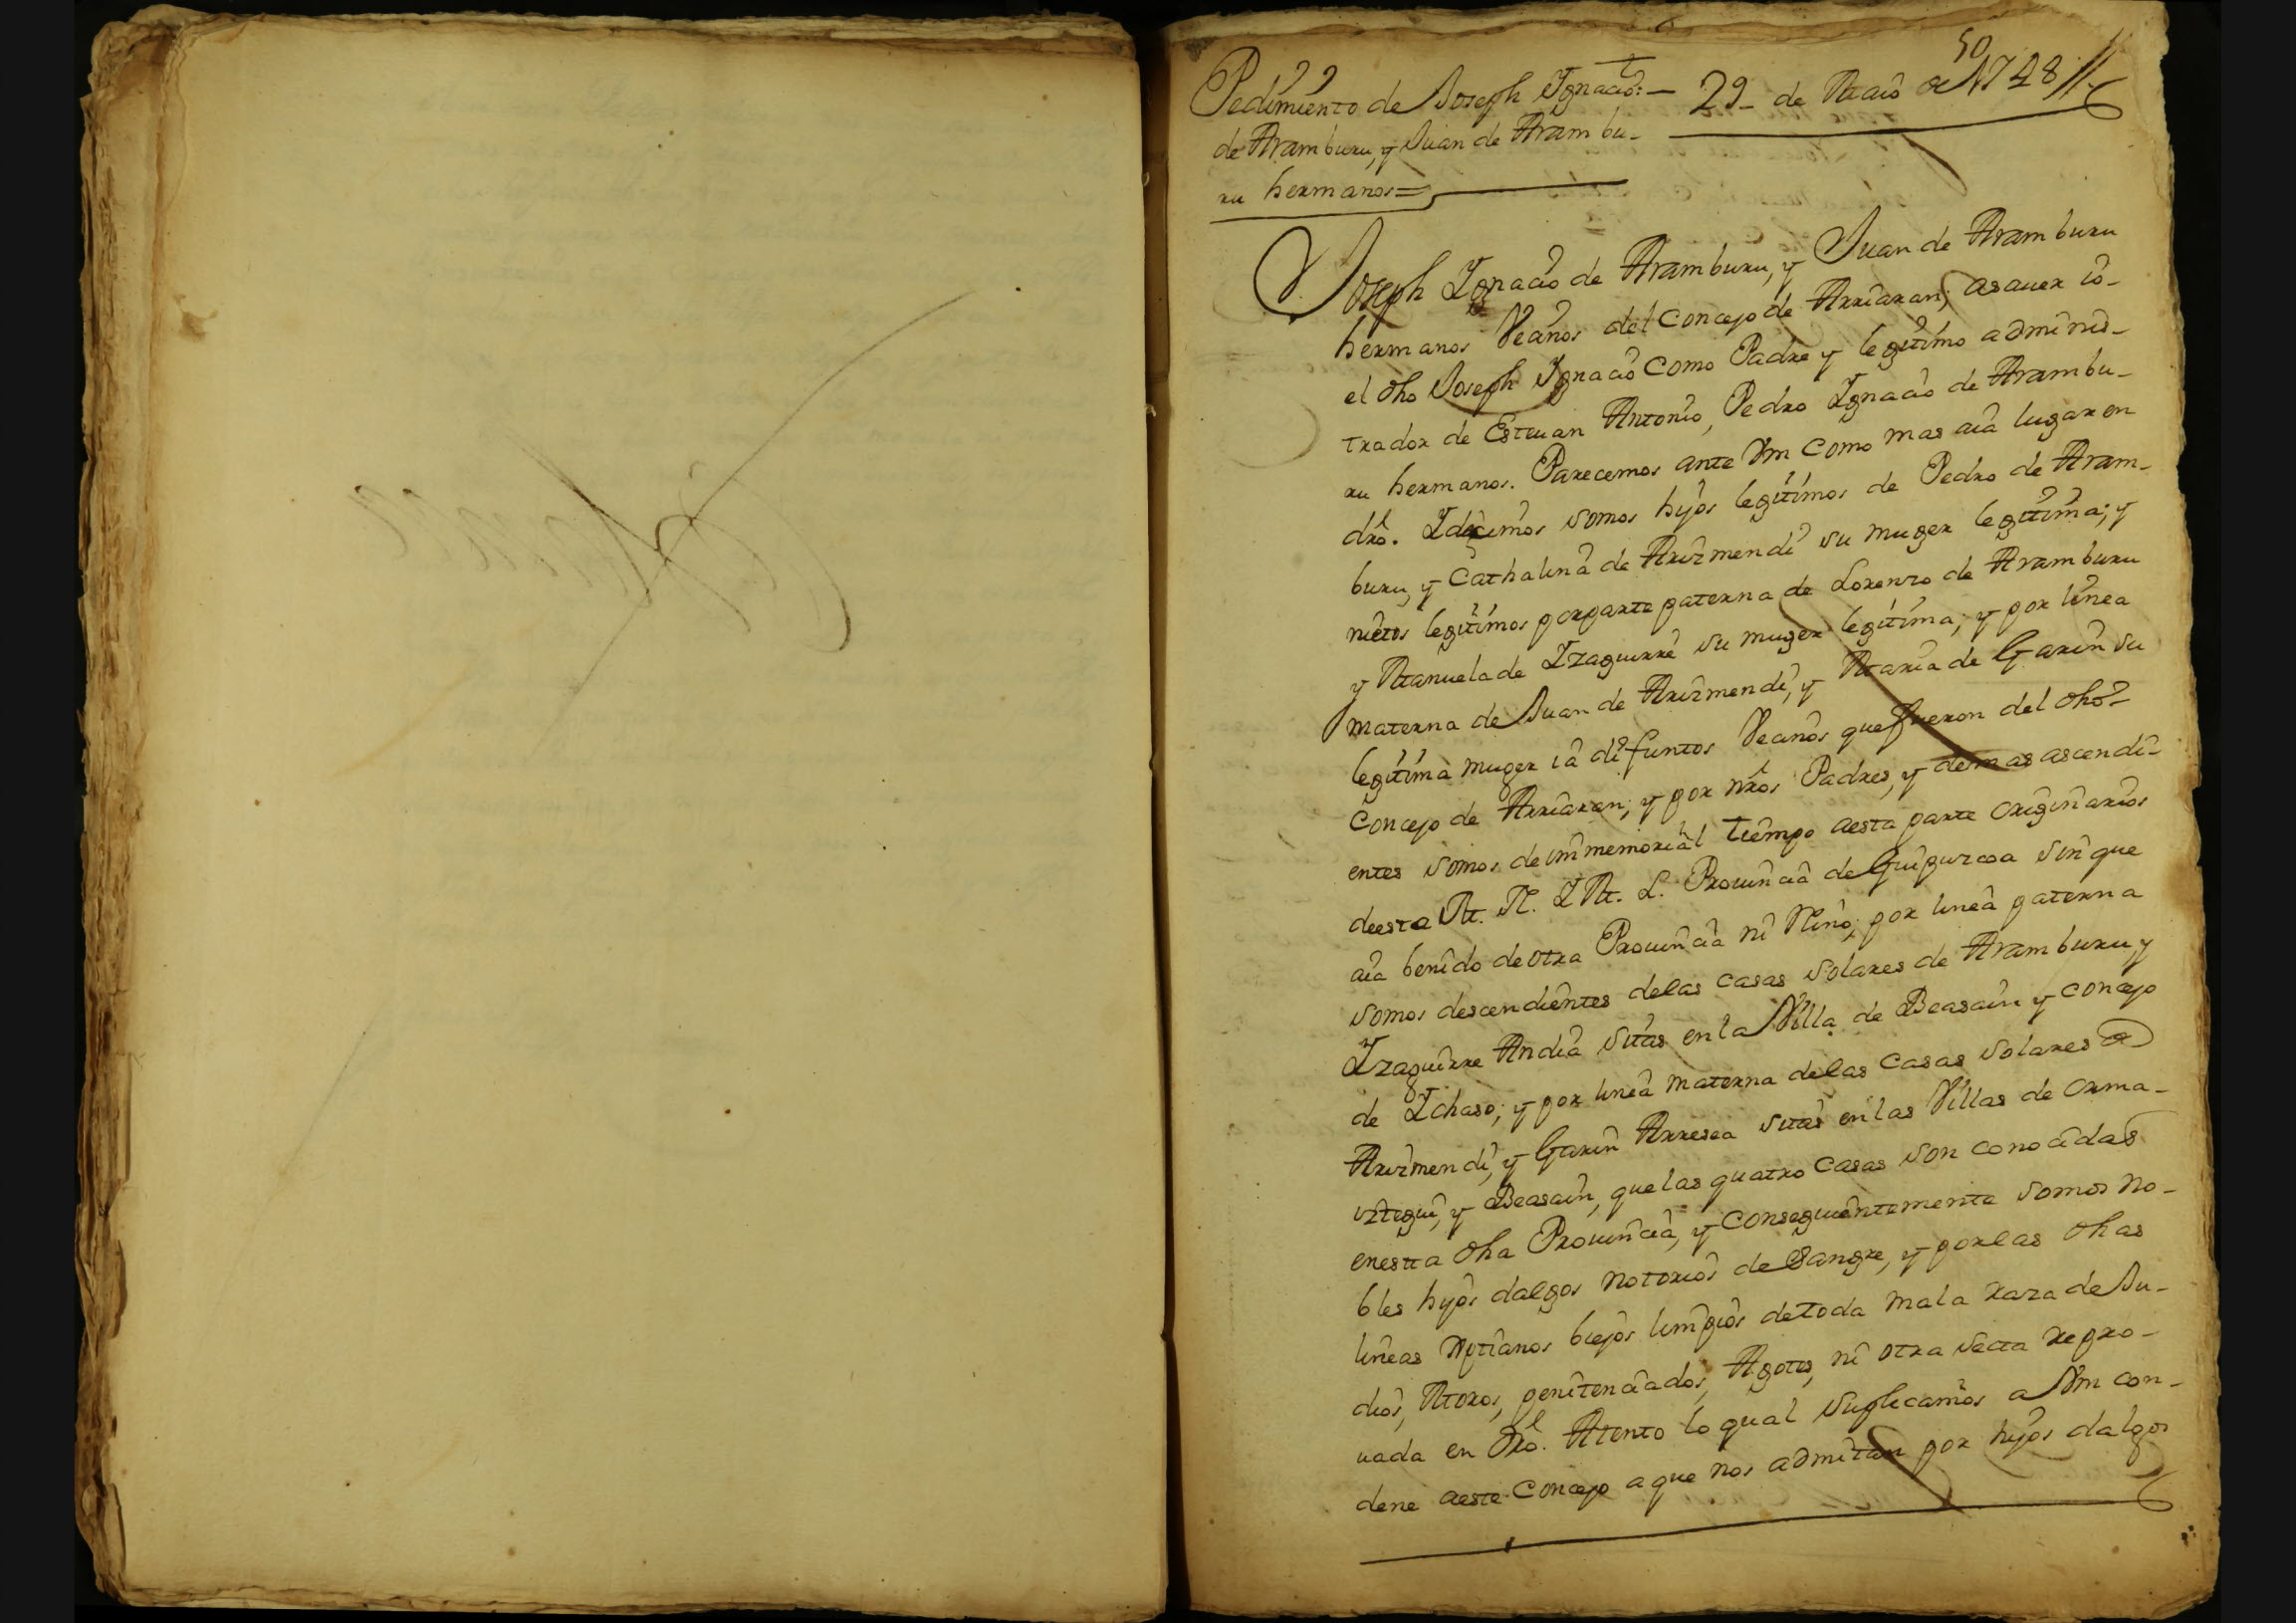 50
Pedimiento de Joseph Ygnacio:— 29- de Maio de 1748//
de Aramburu, y Juan de Arambu-
ru hermanos=
Joseph Ygnacio de Aramburu, y Juan de Aramburu
hermanos Vecinos del Concejo de Arriaran; asauer io-
el dho Joseph Ygnacio Como Padre y legitimo adminis-
trador de Esteuan Antonio, Pedro Ygnacio de Arambu-
ru hermanos. Parecemos ante Vm Como mas aia lugar en
dro. Ydecimos somos hijos legitimos de Pedro de Aram-
buru, y Cathalina de Arizmendi su muger legitima; y
nietos legitimos porparte paterna de Lorenzo de Aramburu
y Manuela de Yzaguirre su muger legitima; y por linea
materna de Juan de Arizmendi, y Maria de Garin su
legitima muger ia difuntos Vecinos que fueron del dho-
Concejo de Arriaran; y por nros Padres, y demas ascendi-
entes somos de immemorial tiempo aesta parte originarios
deesta M. N. Y M. L. Prouincia de Guipuzcoa sin que
aia benido de otra Prouincia ni Reino; por linea paterna
somos descendientes delas casas solares de Aramburu, y
Yzaguirre Andia sitas en la Villa de Beasain y concejo
de Ychaso; y por linea materna delas Casas solares de
Arizmendi, y Garin Arresea sitas en las Villas de Orma-
iztegui, y Beasain, que las quatro casas son conocidas
enesta dha Prouincia, y Consequentemente somos no-
bles hijos dalgos notorios de Sangre, y por las dhas
lineas xptianos biejos limpios detoda mala raza de Ju-
dios, Moros, penitenciados, Agotes, ni otra secta repro-
uada en dro. Atento lo qual suplicamos a Vm con-
dene aeste Concejo a que nos admitan por hijos dalgos